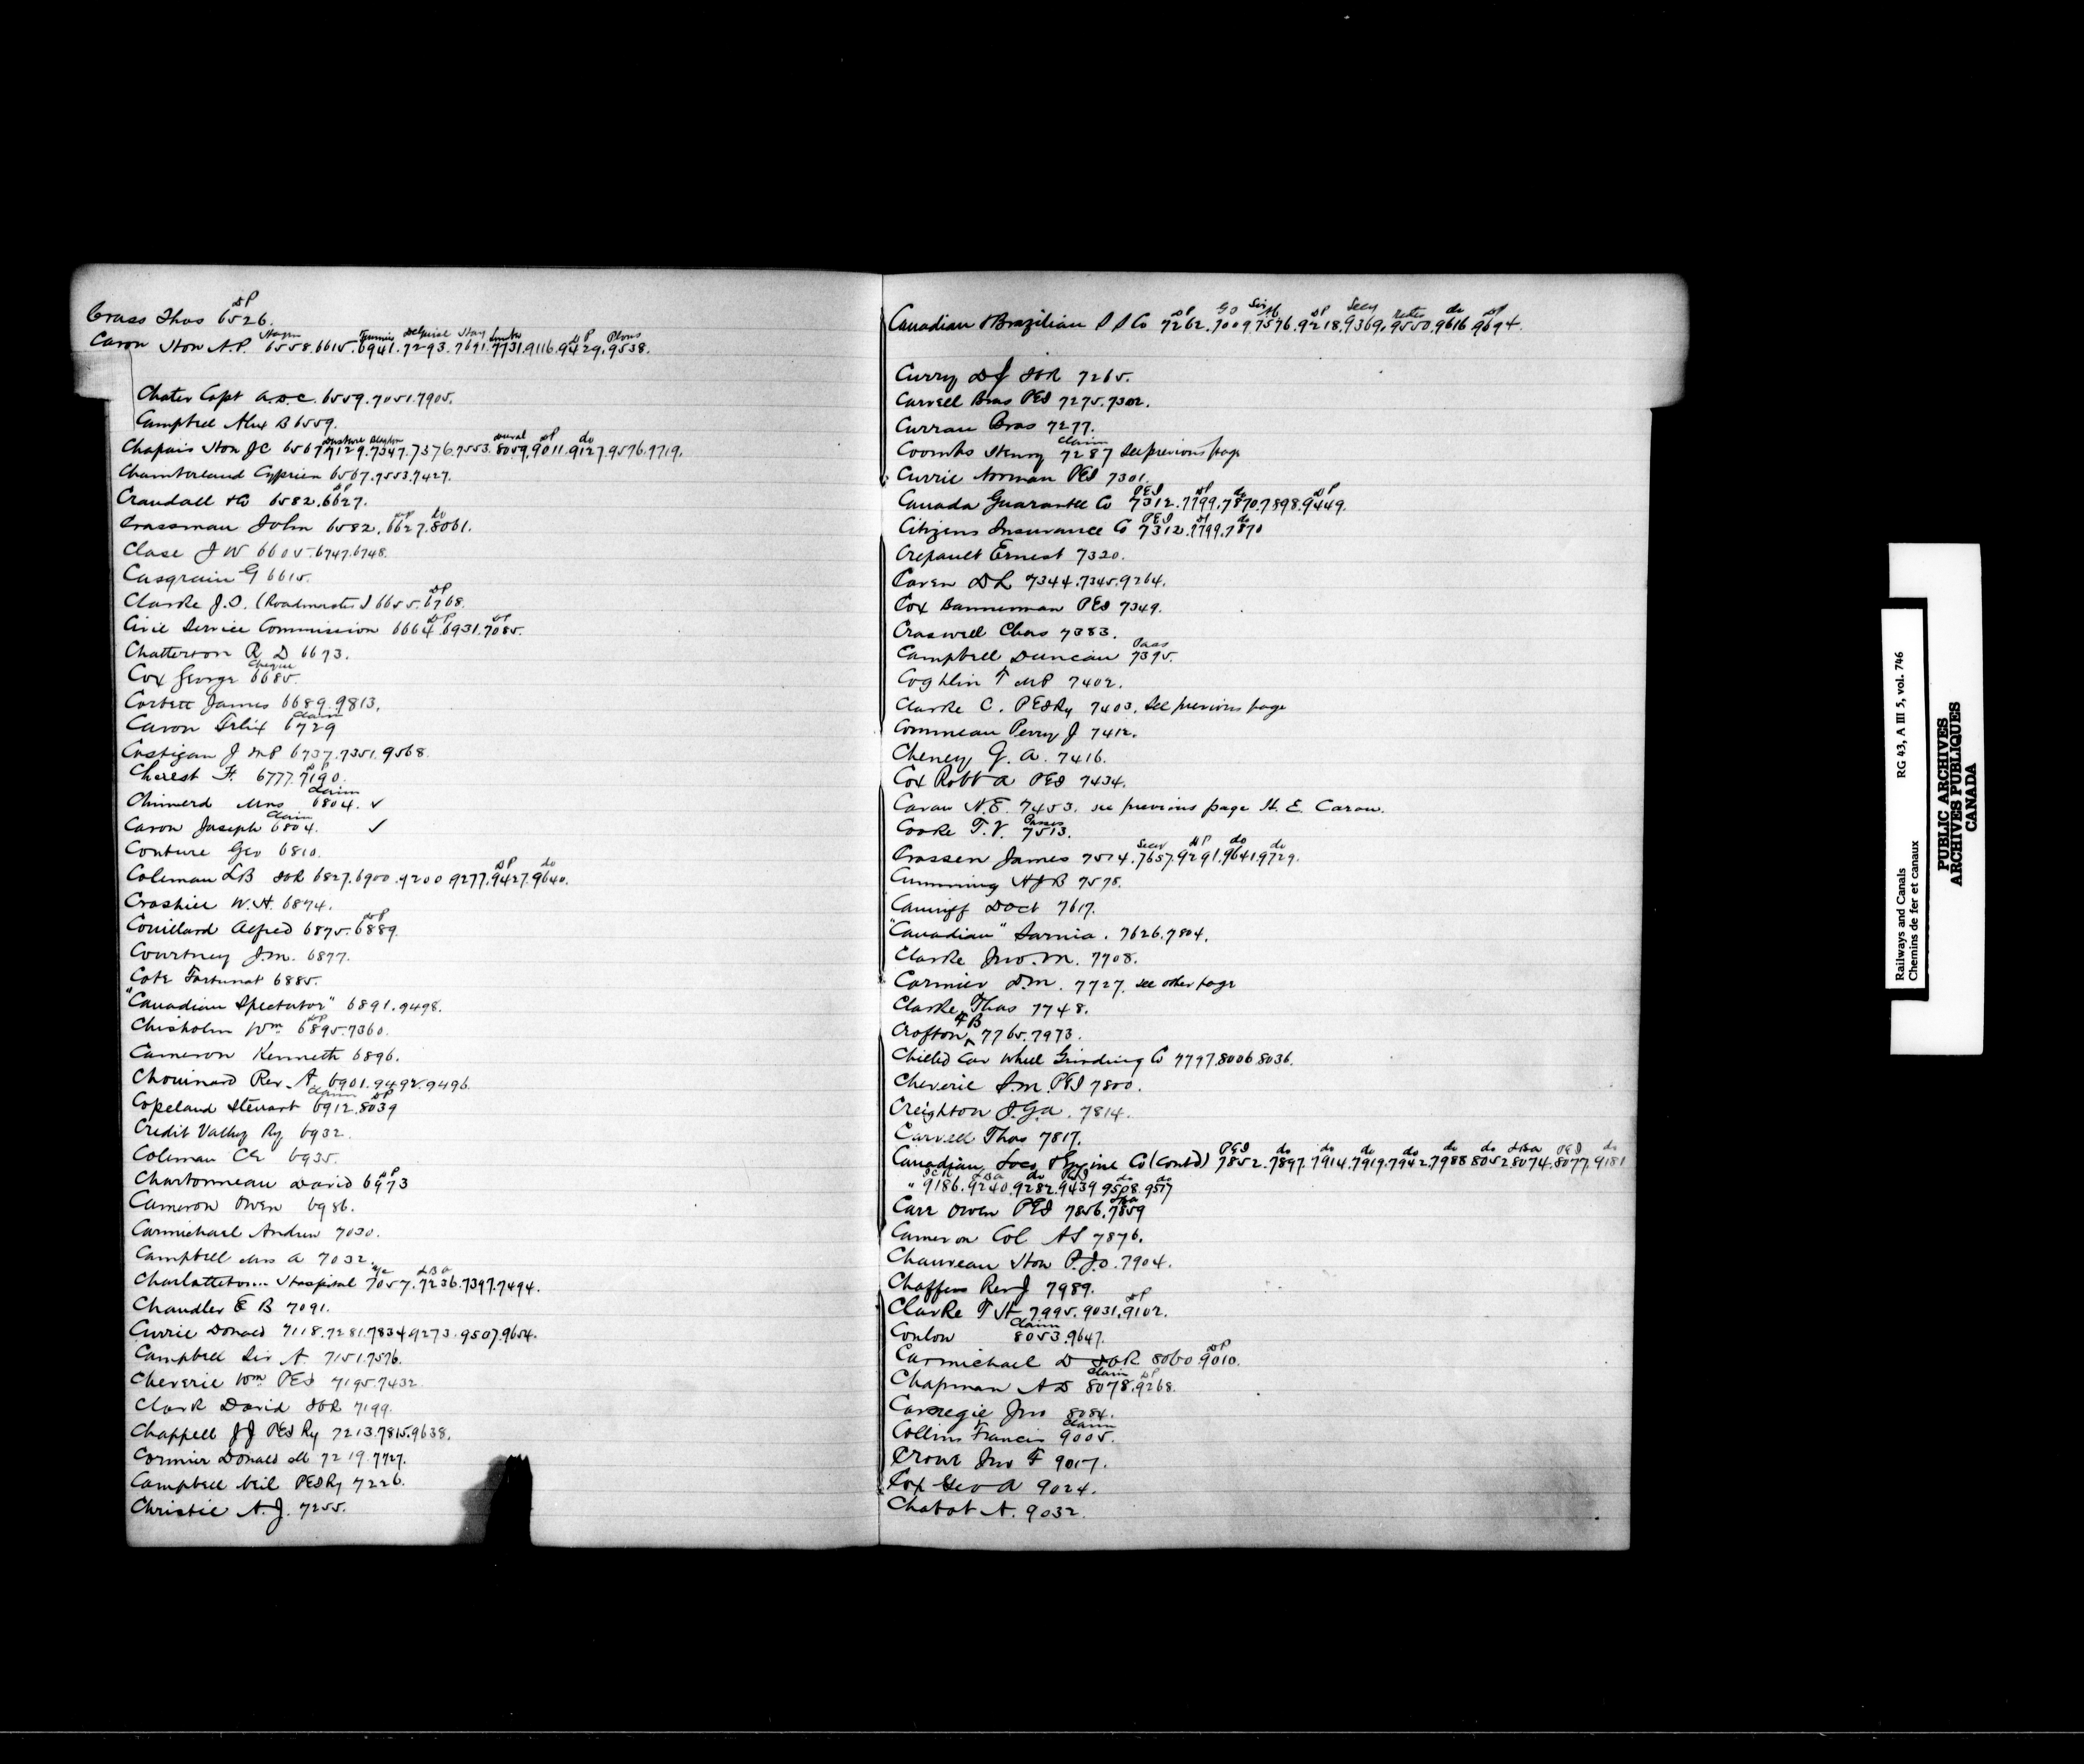 DP
Crass Thos 6526.
Caron Hon A.P. 6558.6615.6941.7293.7691.7731.9116.9429.9538.
Chater Capt A.D.C. 6559.7051.7905.
Campbell Alex B 6559.
Chapais Hon JC 6567.7129.7347.7376.7553.8059.9011.9127.9576.9719.
Chamberland Cyprien 6567.7553.7427.
Crandall & Co 6582.6627.
Crassman John 6582.6627.8061.
Clase J W 6605.6747.6748.
Casgrain G 6615.
Clarke J.O. (Roadmaster) 6655.6768.
Civil Service Commission 6664.6931.7085.
Chatterson R D 6673.
Cox George 6685.
Corbett James 6689.9813.
Claim
Caron Felix 6729
Costigan J MP 6737.7351.9568.
Charest F. 6777.7190.
Claim
Chinerd Mrs 6804. ✓
Claim
Caron Joseph 6804. ✓
Couture Geo 6810.
DP do
Coleman LB ICR 6827.6900.9200 9277.9427.9640.
Croshill W.H. 6874.
DP
Couillard Alfred 6875.6889.
Courtney J.M. 6877.
Cote Fortunat 6885.
"Canadian Spectator" 6891.9498.
DP
Chisholm Wm 6895.7360.
Cameron Kenneth 6896.
Chouinard Rev. A. 6901.9492.9496.
Claim DP
Copeland Stewart 6912.8039
Credit Valley Ry 6932.
Coleman CE 6935.
DP
Charbonneau David 6973
Cameron Owen 6986.
Carmichael Andrew 7030.
Campbell Mrs A 7032.
LBA
Charlottetown Hospital 7057.7236.7397.7494.
Chandler E B 7091.
Currie Donald 7118.7281.7834 9273.9507.9654.
Campbell Sir A. 7151.7576.
Cheverie Wm PEI 7195.7432.
Clark David ICR 7199.
Chappell JJ PEI Ry 7213.7815.9638.
Cormier Donald M 7219.7727.
Campbell Neil PEI Ry 7226.
Christie A.J. 7255.
Canadian & Brazilian S S Co 7262.7009.7576.9218.9369.9550.9616 9694.
Curry DJ ICR 7265.
Carvell Bros PEI 7275.7302.
Curran Bros 7277.
Claim
Coombs Henry 7287 See previous page
Currie Norman PEI 7301.
PEI DP do DP
Canada Guarantee Co 7312.7799.7870.7898.9449.
PEI DP do
Citizens Insurance Co 7312.7799.7870
Crepault Ernest 7320.
Caven DL 7344.7345.9264.
Cox Bannerman PEI 7349.
Craswell Chas 7383.
Pass
Campbell Duncan 7395.
Coghlin T MP 7402.
Clarke C. PEI Ry 7403. See previous page
Commeau Perry J 7412.
Cheney G. A. 7416.
Cox Robt A PEI 7434.
Caran N.E. 7453. see previous page N. E. Caron.
Passes
Cooke T.V. 7513.
Secy DP do do
Crassen James 7574.7657.9291.9641.9729.
Cumming NJB 7578.
Canniff Doct 7617.
"Canadian" Sarnia. 7626.7804.
Clarke Jno. M. 7708.
Cormier D.M. 7727. see other page
Clarke Thos 7748.
FB
Crofton 7765.7973.
Chilled Car Wheel Grinding Co 7797.8006.8036.
Cheverie S.M. PEI 7800.
Creighton J.G.A. 7814.
Carvell Thos 7817.
PEI do do do do do do LBA PEI do
Canadian Loco & Engine Co (Contd) 7852.7897.7914.7919.7942.7988 8052 8074.8077.9181
" 9186.9240.9282.9439 9508.9517
Carr Owen PEI 7856.7859
Cameron Col AS 7876.
Chauveau Hon P.J.O. 7904.
Chaffers Rev J 7989.
DP
Clarke T H 7995.9031.9102.
Claim
Conlon 8053.9647.
DP
Carmichael D ICR 8060.9010.
Claim DP
Chapman A D 8078.9268.
Carnegie Jno 8084.
Claim
Collins Francis 9005.
Crowe Jno F 9017.
Cox Geo A 9024.
Chabot A. 9032.
Railways and Canals
Chemins de fer et canaux
RG 43, A III 5, vol. 746
PUBLIC ARCHIVES
ARCHIVES PUBLIQUES
CANADA